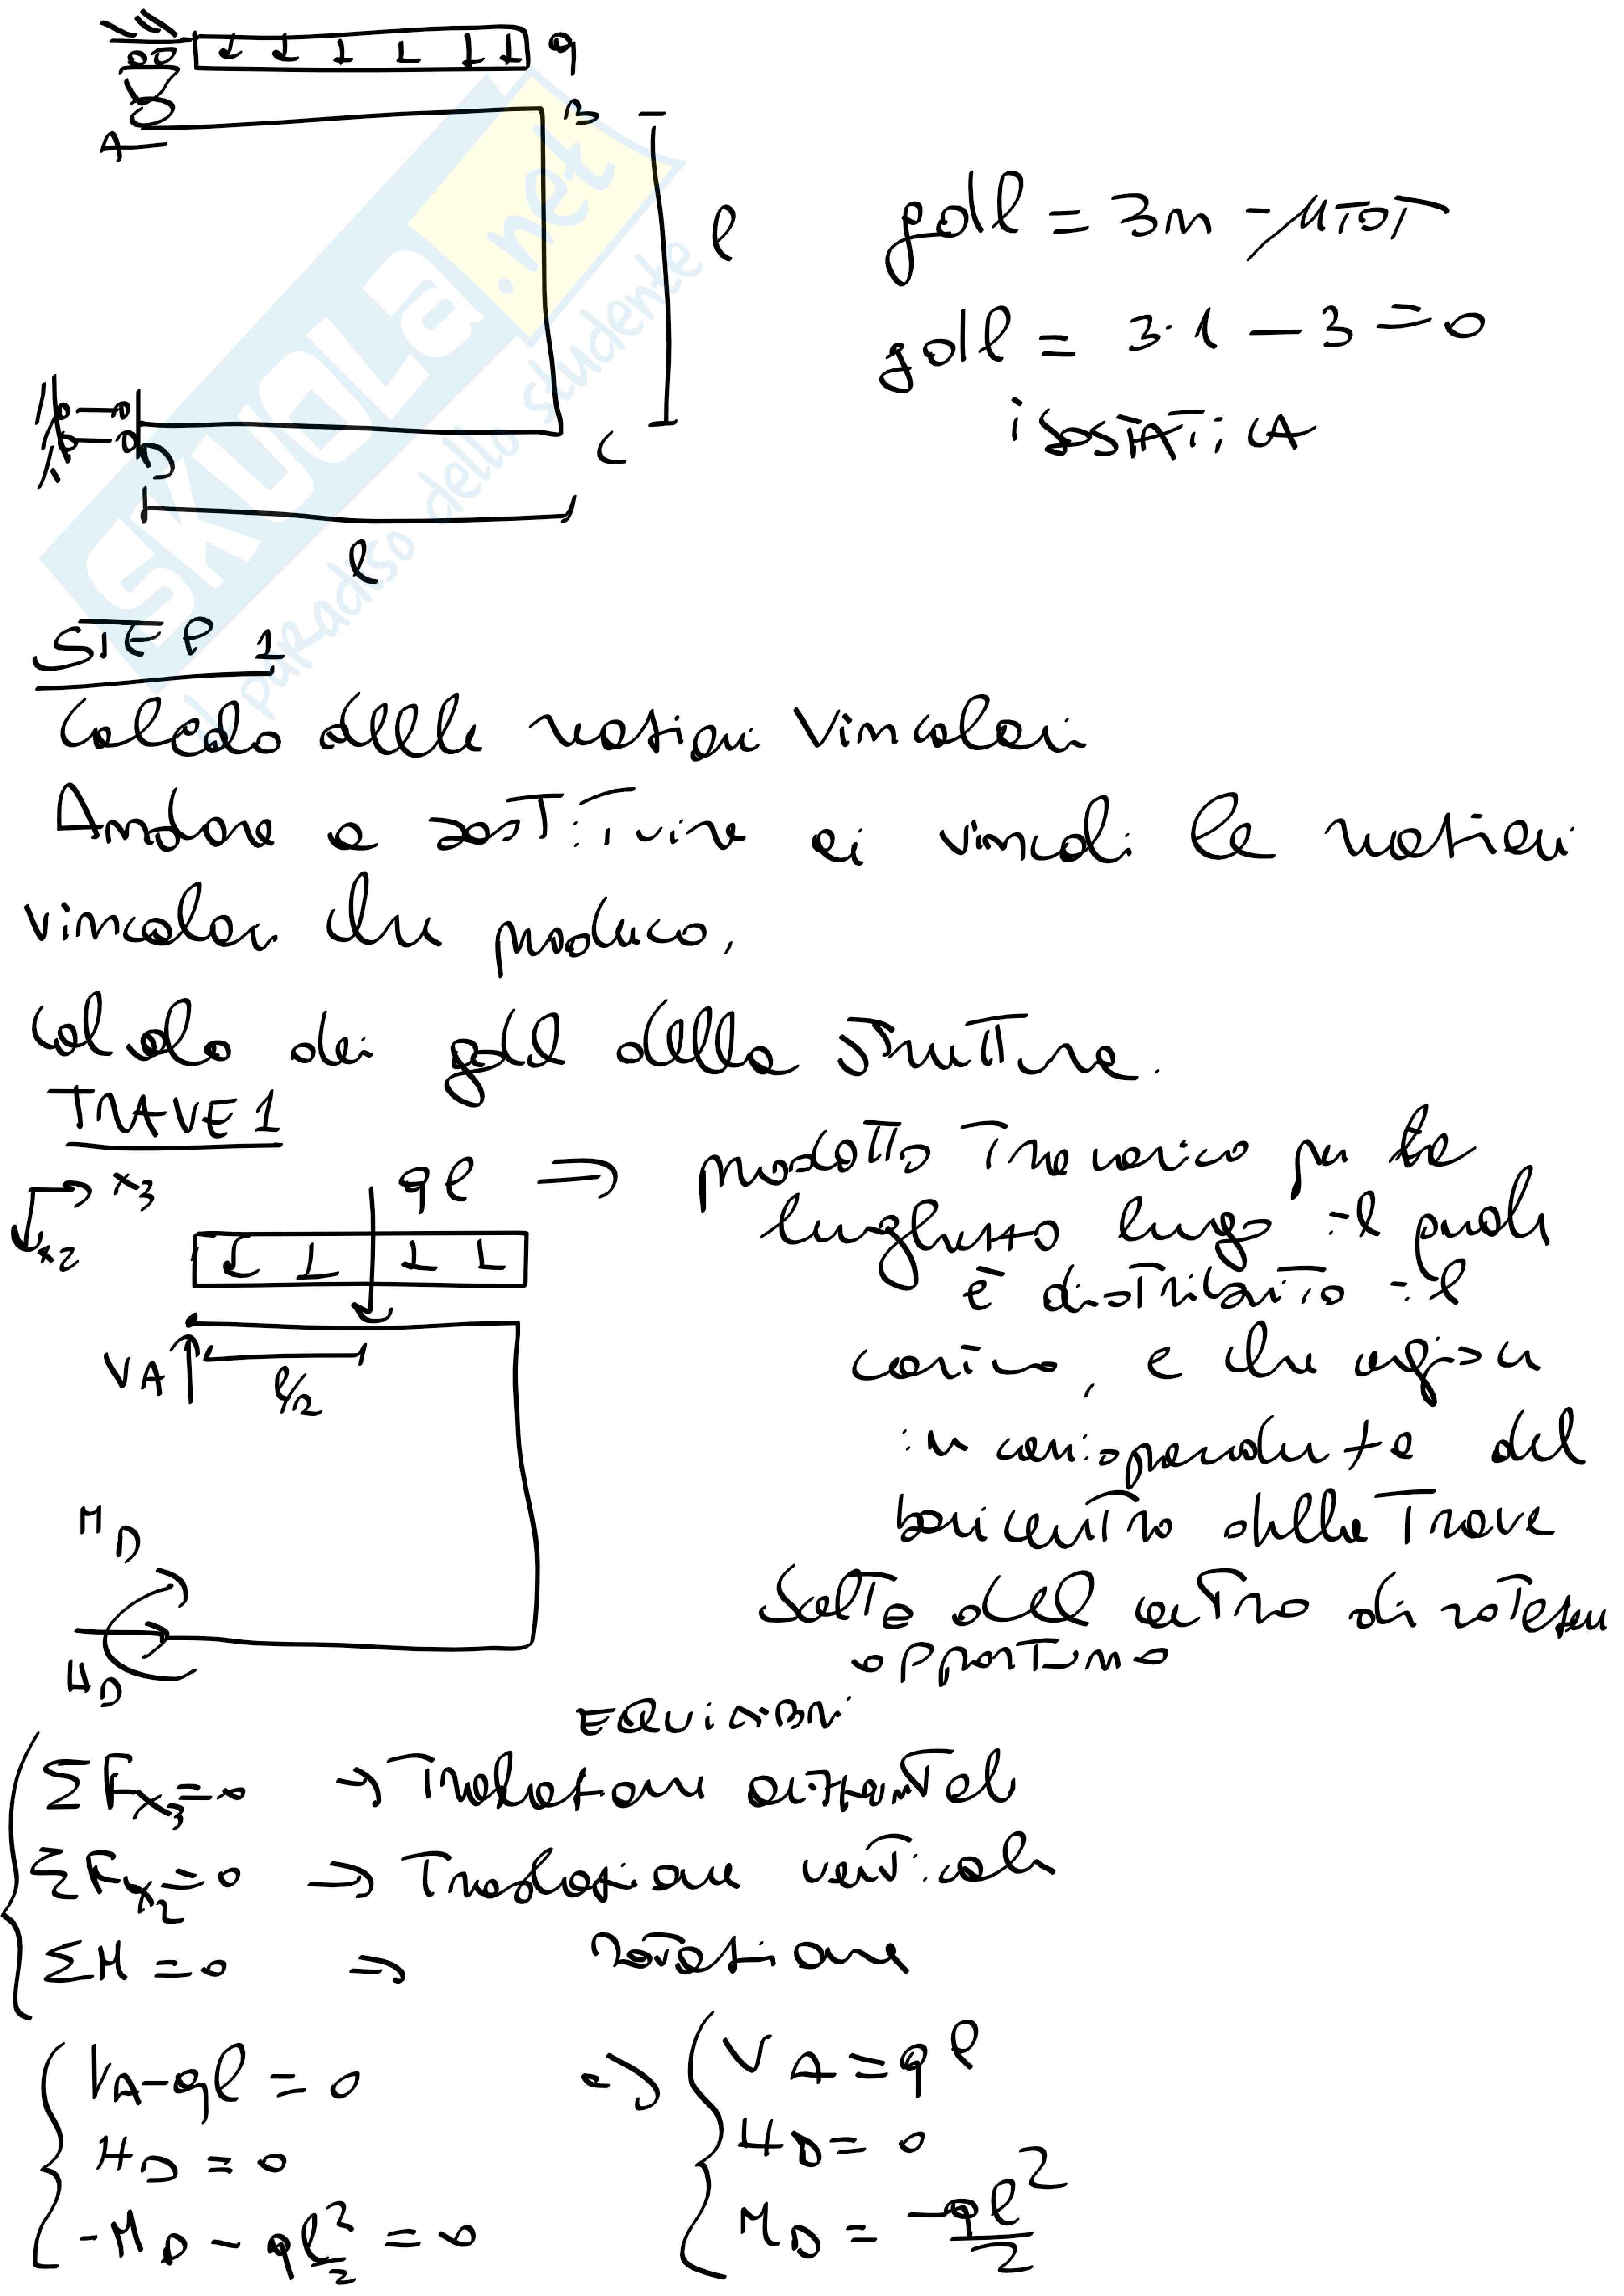 q
A
B
l
C
D
l
gdll = 3n - μTOT
gdll = 3·1 - 3 = 0
isostatica
SKUOLA.net
il paradiso dello studente
STEP 1
Calcolo delle reazioni vincolari
Andare a sostituire ai vincoli le reazioni
vincolari che produco.
Calcolo dei gdl della struttura.
TRAVE 1
x3
x2
ql ⇒ prodotto tra carico per la
lunghezza lungo il quale
è distribuito il
carico, e che agisce
in corrispondenza del
baricentro della trave
VA
l/2
MD
HD
Scelta del centro di rotazione
opportuno
EQUILIBRI
ΣFx3=0 → Traslazione orizzontale
ΣFx2=0 ⇒ Traslazione verticale
ΣM=0 ⇒ rotazione
VA-ql=0 ⇒ VA=ql
HD=0 HD=0
-MD-ql²/2=0 MD=-ql²/2